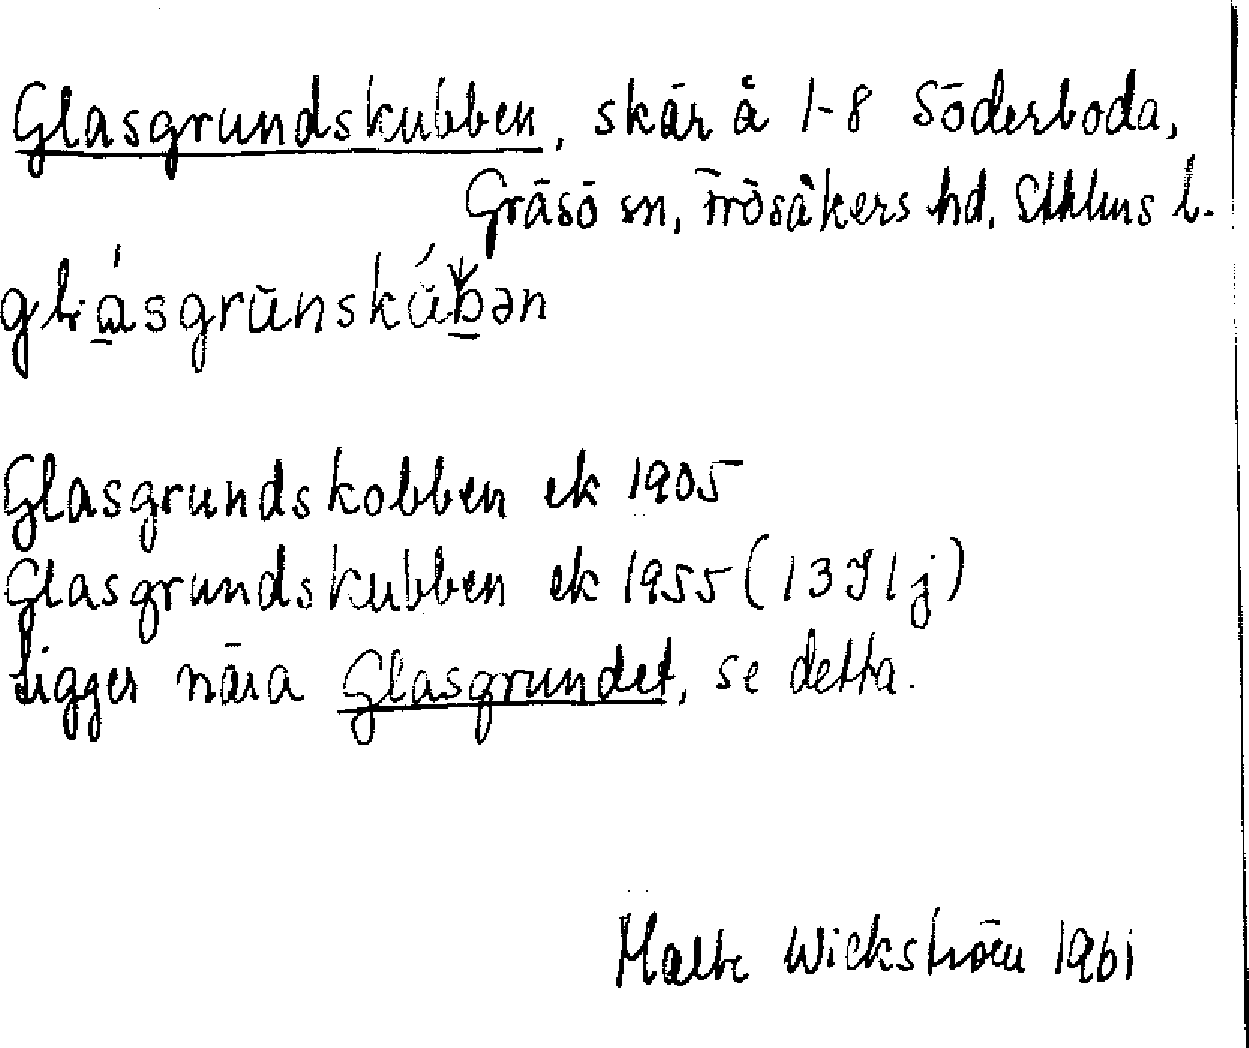 Glasgrundskubben, skär å 1-8 Söderboda,
Gräsö sn, Frösåkers hd, Sthlms l.
Glasgrundskobben ek 1905
Glasgrundskubben ek 1955 (13I1j)
Ligger nära Glasgrundet, se detta.
Wickström 1961